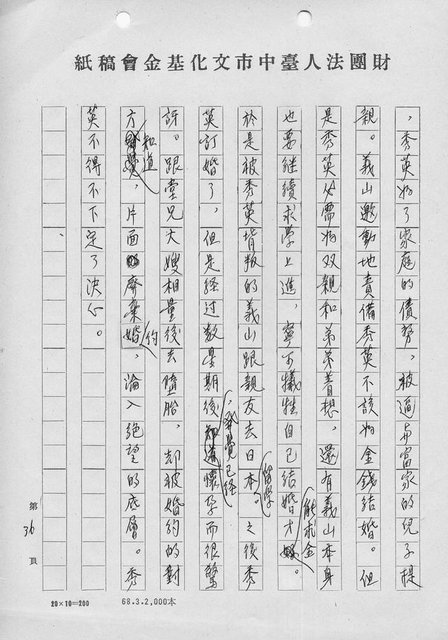 財團法人臺中市文化基金會稿紙
，秀英為了家庭的債務，被逼與富家的兒子提
親。義山激動地責備秀英不該為金錢結婚。但
是秀英必需為双親和弟弟着想，還有義山本身
也要継續求學上進，寧可犧牲自己結婚才能求金
於是被秀英背叛的義山跟親友去日本留學。之後秀
英訂婚了，但是経过数星期後，發覺已経懷孕而很驚
訝。跟堂兄大嫂相量後去墮胎，却被婚約的對
方知道，片面廢棄婚約，淪入絕望的底層。秀
英不得不下定了決心。
第36頁
20×10=200
68.3.2,000本